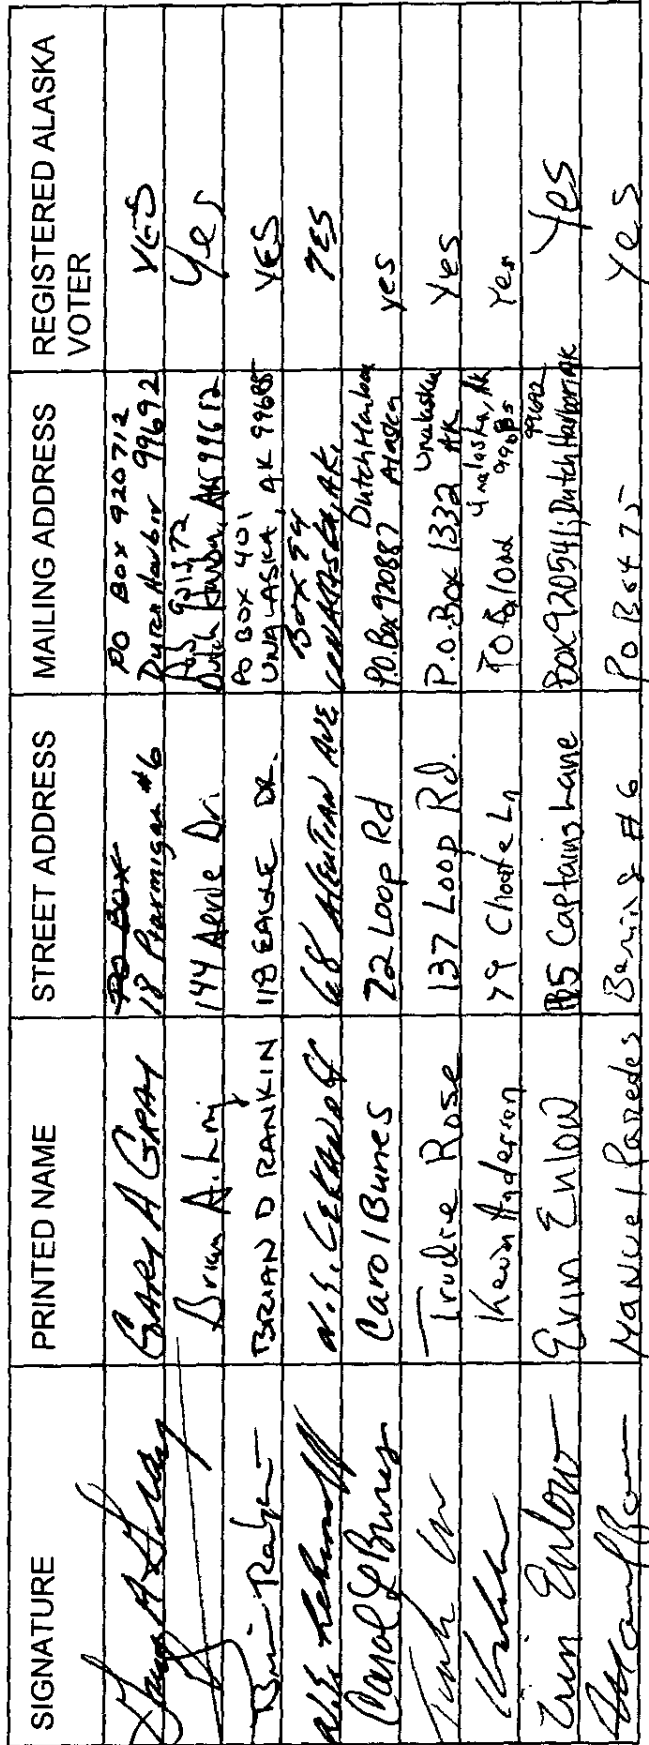 SIGNATURE PRINTED NAME STREET ADDRESS MAILING ADDRESS REGISTERED ALASKA VOTER
GARY A GRAY PO BOX 18 Ptarmigan #6 PO BOX 920712 Dutch Harbor 99692 YES
Brian A. 144 Dr. Dutch Harbor, AK 99612 Yes
BRIAN D RANKIN 118 EAGLE DR. PO BOX 401 UNALASKA, AK 99685 YES
N.S. LEKANOFF 68 ALEUTIAN AVE BOX 54 UNALASKA, AK, YES
Carol Burnes 22 Loop Rd P.O. Box 920887 Dutch Harbor Alaska yes
Trudie Rose 137 Loop Rd. P.O. Box 1332 Unalaska AK Yes
Kevin Anderson 79 Choate Ln PO Box Unalaska, AK 99685 Yes
Erin Enlow Erin Enlow Captains Lane Box 920541, Dutch Harbor AK 99692 Yes
Manuel Paredes Bering #6 PO Box 475 Yes